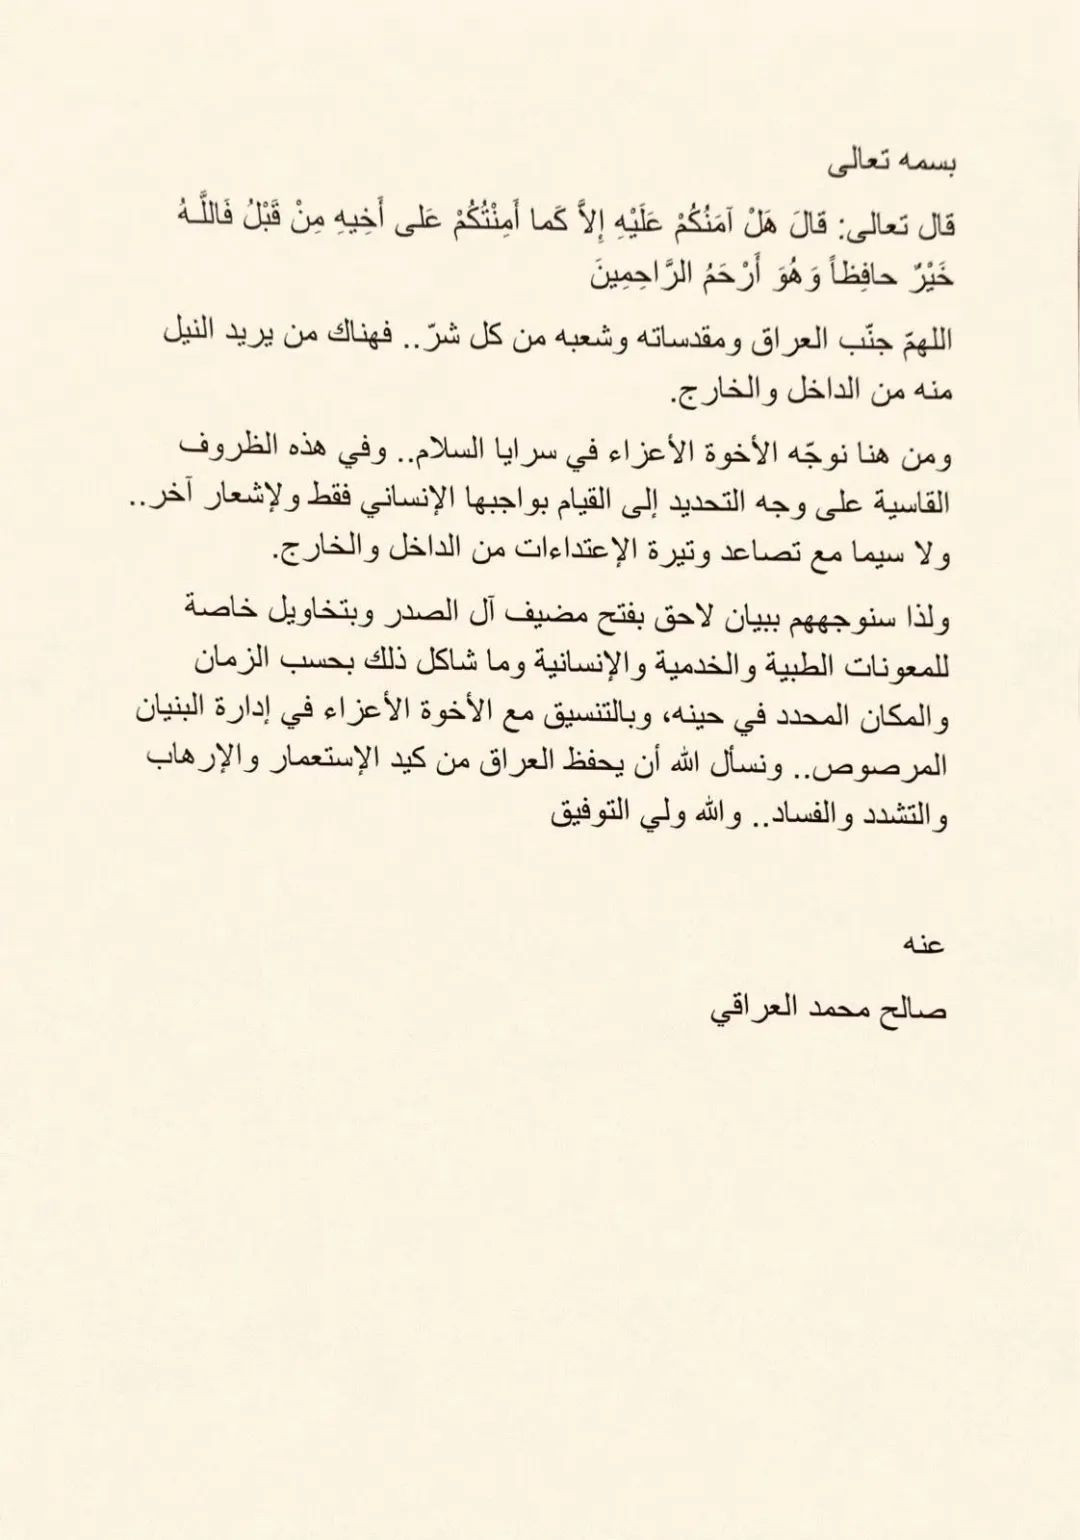 بسمه تعالى
قال تعالى: قالَ هَلْ آمَنُكُمْ عَلَيْهِ إِلاَّ كَما أَمِنْتُكُمْ عَلى أَخِيهِ مِنْ قَبْلُ فَاللَّـهُ
خَيْرٌ حافِظاً وَ هُوَ أَرْحَمُ الرَّاحِمِينَ
اللهمّ جنّب العراق ومقدساته وشعبه من كل شرّ.. فهناك من يريد النيل
منه من الداخل والخارج.
ومن هنا نوجّه الأخوة الأعزاء في سرايا السلام.. وفي هذه الظروف
القاسية على وجه التحديد إلى القيام بواجبها الإنساني فقط ولإشعار آخر..
ولا سيما مع تصاعد وتيرة الإعتداءات من الداخل والخارج.
ولذا سنوجههم ببيان لاحق بفتح مضيف آل الصدر وبتخاويل خاصة
للمعونات الطبية والخدمية والإنسانية وما شاكل ذلك بحسب الزمان
والمكان المحدد في حينه، وبالتنسيق مع الأخوة الأعزاء في إدارة البنيان
المرصوص.. ونسأل الله أن يحفظ العراق من كيد الإستعمار والإرهاب
والتشدد والفساد.. والله ولي التوفيق
عنه
صالح محمد العراقي